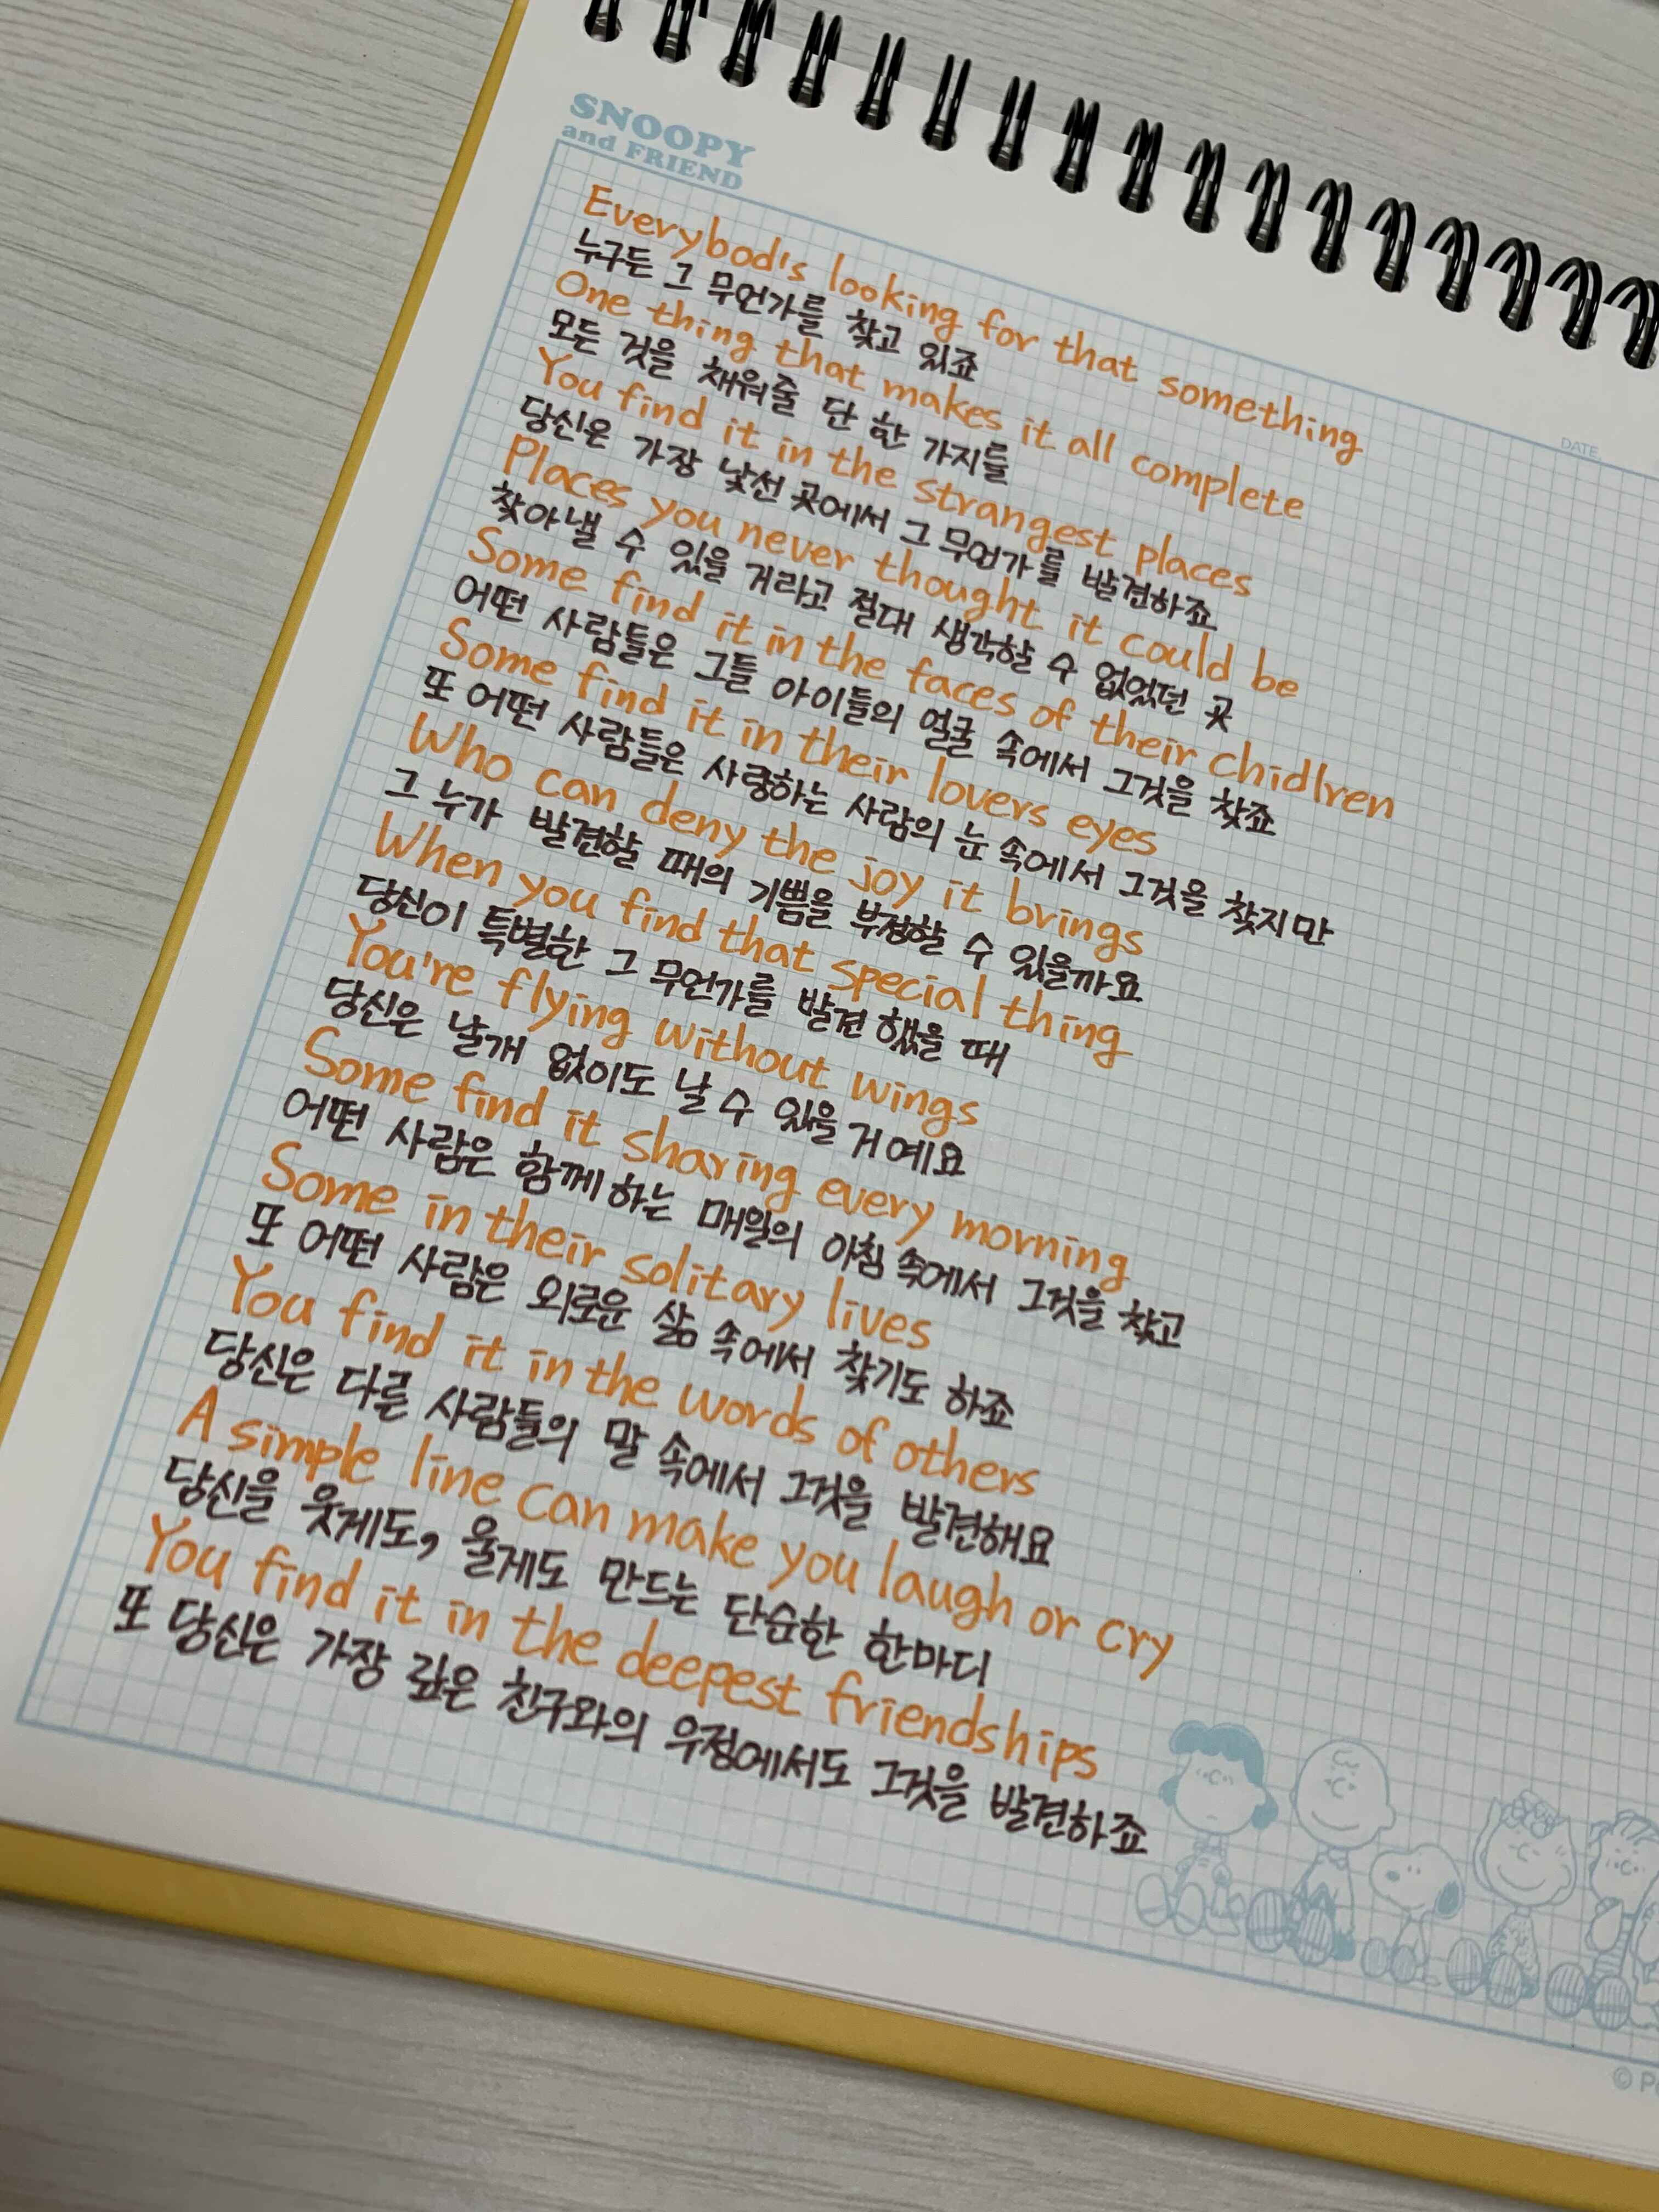 SNOOPY
and FRIEND
DATE.
Everybod's looking for that something
누구든 그 무언가를 찾고 있죠
One thing that makes it all complete
모든 것을 채워줄 단 한 가지를
You find it in the strangest places
당신은 가장 낯선 곳에서 그 무언가를 발견하죠
Places you never thought it could be
찾아낼 수 있을 거라고 절대 생각할 수 없었던 곳
Some find it in the faces of their chidlren
어떤 사람들은 그들 아이들의 얼굴 속에서 그것을 찾죠
Some find it in their lovers eyes
또 어떤 사람들은 사랑하는 사람의 눈 속에서 그것을 찾지만
Who can deny the joy it brings
그 누가 발견할 때의 기쁨을 부정할 수 있을까요
When you find that special thing
당신이 특별한 그 무언가를 발견 했을 때
You're flying without wings
당신은 날개 없이도 날 수 있을 거예요
Some find it sharing every morning
어떤 사람은 함께 하는 매일의 아침 속에서 그것을 찾고
Some in their solitary lives
또 어떤 사람은 외로운 삶 속에서 찾기도 하죠
You find it in the words of others
당신은 다른 사람들의 말 속에서 그것을 발견해요
A simple line can make you laugh or cry
당신을 웃게도, 울게도 만드는 단순한 한마디
You find it in the deepest friendships
또 당신은 가장 깊은 친구와의 우정에서도 그것을 발견하죠